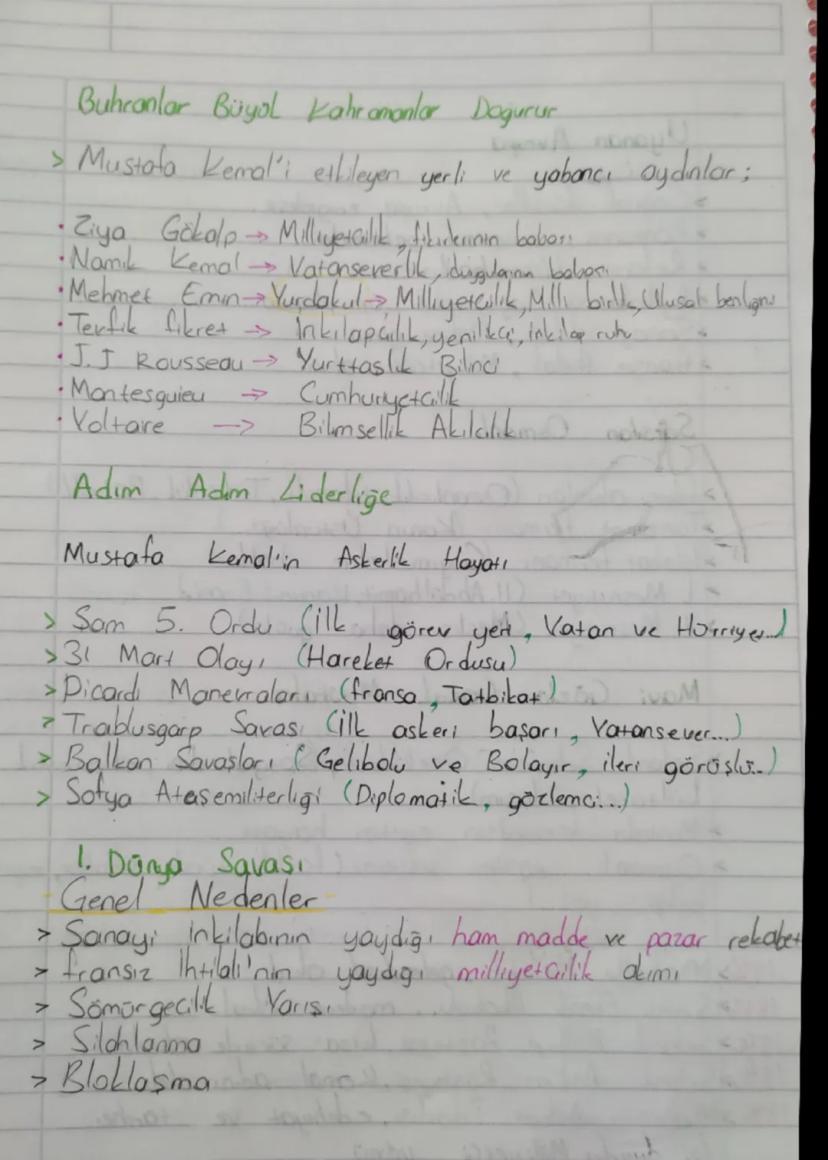 Buhranlar Büyük Kahramanlar Doğurur
> Mustafa Kemal'i etkileyen yerli ve yabancı aydınlar;
• Ziya Gökalp → Milliyetcilik, fikirlerinin babası
• Namık Kemal → Vatanseverlik, duygularının babası
• Mehmet Emin → Yurdakul → Milliyetcilik, Milli birlik, Ulusal benliğini
• Tevfik fikret → İnkılapcılık, yenilikci, inkilap ruhu
• J.J Rousseau → Yurttaslık Bilinci
• Montesquieu → Cumhuriyetcilik
• Voltare → Bilimsellik Akılcılık
Adım Adım Liderliğe
Mustafa Kemal'in Askerlik Hayatı
> Sam 5. Ordu (ilk görev yeri, Vatan ve Hürriyet...)
> 31 Mart Olayı (Hareket Ordusu)
> Picardi Manevraları (fransa, Tatbikat)
> Trablusgarp Savası (ilk askeri başarı, Vatansever...)
> Balkan Savaşları (Gelibolu ve Bolayır, ileri görüşlü..)
> Sofya Ataşemiliterligi (Diplomatik, gözlemci...)
1. Dünya Savası
Genel Nedenler
> Sanayi inkilabının yaydığı ham madde ve pazar rekabet
> fransız İhtilali'nin yaydıgı milliyetcilik akımı
> Sömürgecilik Yarısı
> Silahlanma
> Bloklaşma